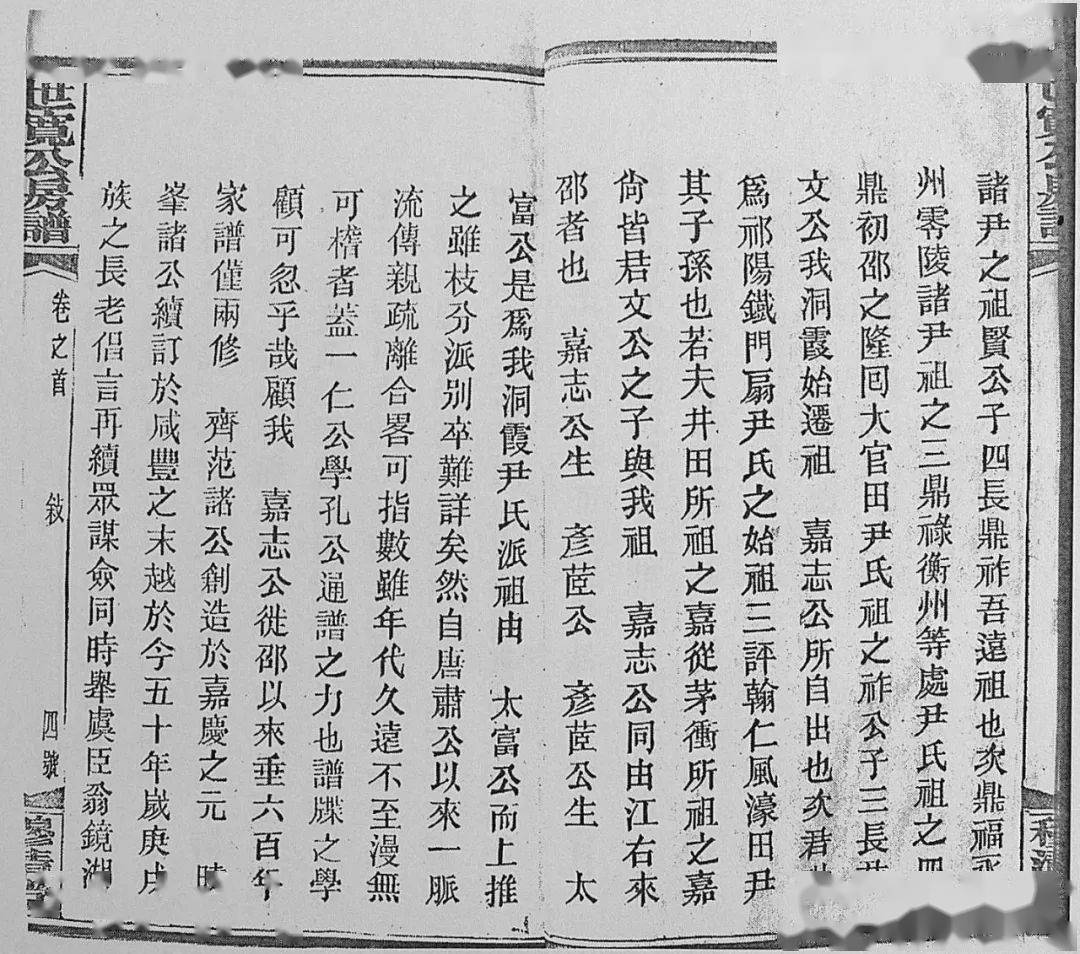 諸尹之祖賢公子四長鼎祚吾遠祖也次鼎福永
州零陵諸尹祖之三鼎祿衡州等處尹氏祖之四
鼎初邵之隆回大官田尹氏祖之祚公子三長君
文公我洞霞始遷祖 嘉志公所自出也次君
為祁陽鐵門扇尹氏之始祖三評翰仁風濠田尹
其子孫也若夫井田所祖之嘉從茅衝所祖之嘉
尙皆君文公之子與我祖 嘉志公同由江右來
邵者也 嘉志公生 彥茝公 彥茝公生 太
富公是爲我洞霞尹氏派祖由 太富公而上推
之雖枝分派別卒難詳矣然自唐肅公以來一脈
流傳親疏離合畧可指數雖年代久遠不至漫無
可稽者蓋一仁公學孔公通譜之力也譜牒之學
顧可忽乎哉顧我 嘉志公徙邵以來垂六百年
家譜僅兩修 齊范諸公創造於嘉慶之元 曉
峯諸公續訂於咸豐之末越於今五十年歲庚戌
族之長老倡言再續眾謀僉同時舉虞臣翁鏡湖
世寬公房譜
卷之首
敍
四號